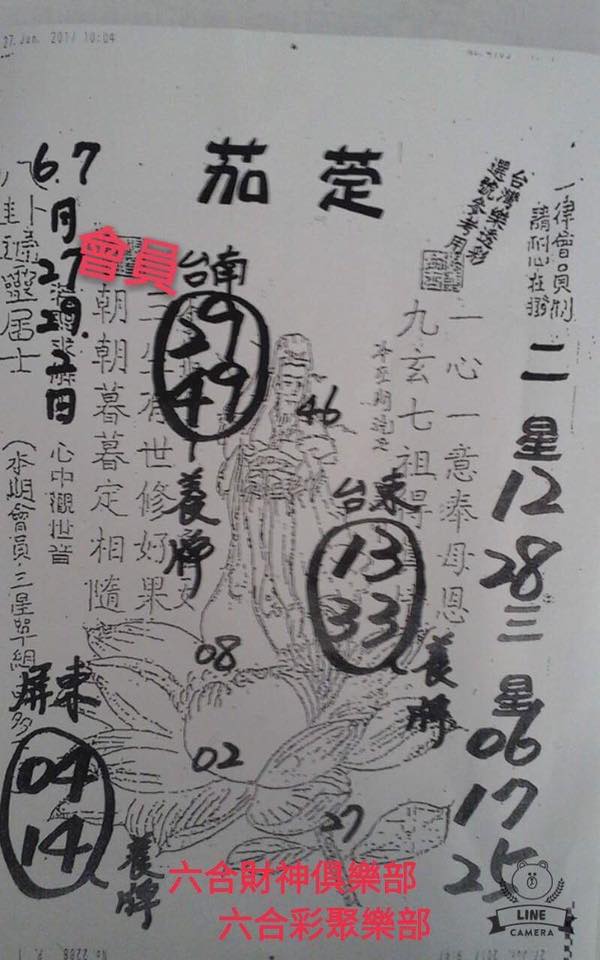 27. Jun. 2017 10:04
茄萣
台灣樂透彩
選號參考用
一律會員制
請耐心在撥
二星
12
28
三星
06
17
25
一心一意奉母恩
九玄七祖得
台南
29
49
養牌
46
台東
13
33
養牌
三生有世修好果
朝朝暮暮定相隨
會員
6.7
月
27
29.
2
日
八卦
居士
心中觀世音
(本期會員三星單組
屏東
04
14
養牌
08
02
27
六合財神俱樂部
六合彩聚樂部
LINE
CAMERA